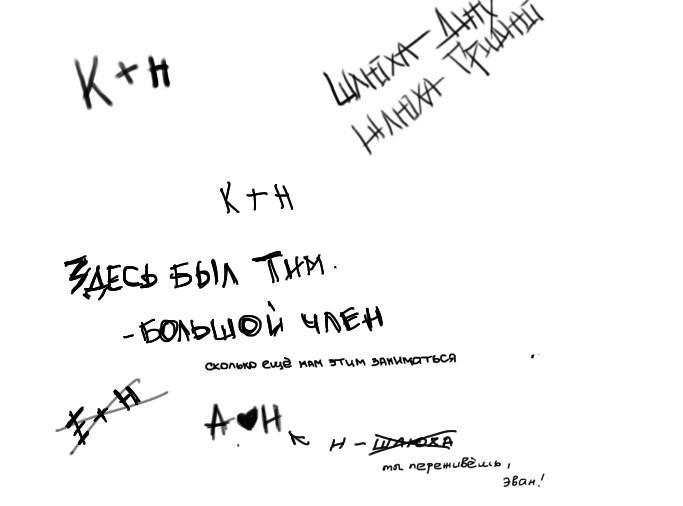 К + Н
ШЛЮХА - ДИК
ШЛЮХА ГРИДНАЙ
К + Н
ЗДЕСЬ БЫЛ ТИМ.
- БОЛЬШОЙ ЧЛЕН
СКОЛЬКО ЕЩЁ НАМ ЭТИМ ЗАНИМАТЬСЯ
Е + Н
А ♥ Н
Н - ШЛЮХА
ты переживёшь,
Эван!